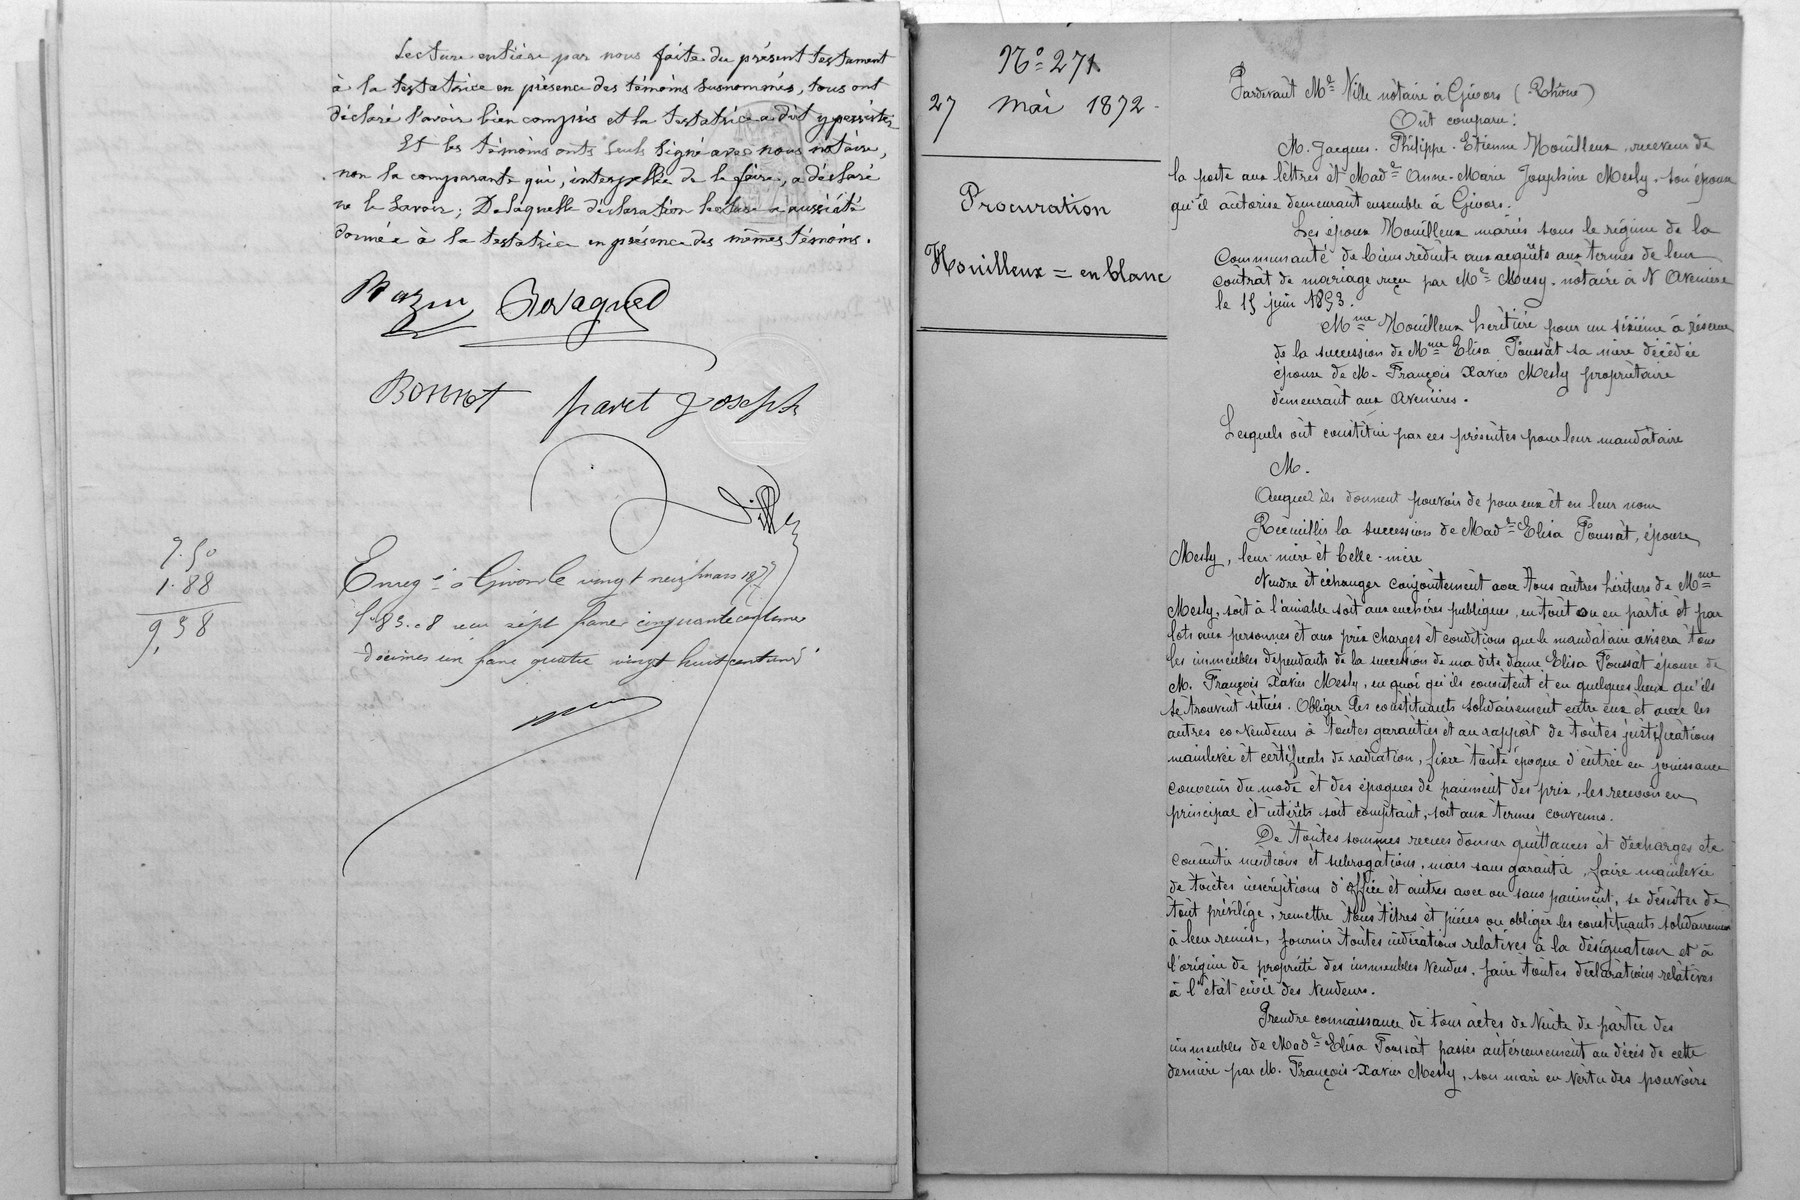 Lecture entière par nous faite du présent testament
à la testatrice en présence des témoins susnommés, tous ont
déclaré l'avoir bien compris et la testatrice a dit y persister
Et les témoins onts seuls signé avec nous notaire,
non la comparante qui, interpellée de le faire, a déclaré
ne le savoir; De laquelle déclaration lecture a aussi été
donnée à la testatrice en présence des mêmes témoins.
Bazin Rovagnet
Bonnet pavet Joseph
Ville
7.50
1.88
9,38
Enreg.é à Givors le vingt neuf mars 1877
fo 83. c 8 reçu sept francs cinquante centimes
décimes un franc quatre vingt huit centimes
No 271.
27 Mai 1872.
Procuration
Mouilleux = en blanc
Pardevant Me Ville notaire à Givors (Rhône)
Ont comparu:
M. Jacques. Philippe. Etienne Mouilleux, receveur de
la poste aux lèttres èt Made Anne-Marie Joséphine Mesly. son épouse
qu'il autorise demeurant ensemble à Givors.
Les époux Mouilleux mariés sous le régime de la
Communauté de biens réduite aux acquêts aux termes de leur
contrat de mariage reçu par Me notaire à
le 15 juin 1853.
Mme Mouilleux héritière pour un sixième à réserve
de la succession de Mme Elisa Poussat sa mère décédée
épouse de M. François Xavier Mesly propriétaire
demeurant aux Avenières.
Lesquels ont constitué par ces présentes pour leur mandataire
M.
Auquel ils donnent pouvoir de pour eux èt en leur nom
Recueillir la succession de Made Elisa Poussat, épouse
Mesly, leur mère èt belle-mère
Vendre èt échanger conjointement avec tous autres héritiers de Mme
Mesly, soit à l'amiable soit aux enchères publiques, en tout ou en partie èt par
lots aux personnes èt aux prix charges èt conditions que le mandataire avisera tous
les immeubles dépendants de la succession de ma dite dame Elisa Poussat épouse de
M. François Xavier Mesly, en quoi qu'ils consistent et en quelques lieux qu'ils
se trouvent situés. Obliger les constituants solidairement entre eux et avec les
autres co-vendeurs à toutes garanties et au rapport de toutes justifications
mainlevée èt certificats de radiation, fixer toute époque d'entrée en jouissance
convenir du mode èt des époques de paiement des prix, les recevoir en
principal èt intérêts soit comptant, soit aux termes convenus.
De toutes sommes reçues donner quittances èt décharges etc
consentir mentions èt subrogations, mais sans garantie, faire mainlevée
de toutes inscriptions d'office èt autres avec ou sans paiement, se désister de
tout privilége, remettre tous titres èt pièces ou obliger les constituants solidairement
à leur remise, fournir toutes indications relatives à la désignation et à
l'origine de propriété des immeubles vendus. faire toutes déclarations relatives
à l'état civil des vendeurs.
Prendre connaissance de tous actes de vente de partie des
immeubles de Made Elisa Poussat passés antérieurement au décès de cette
dernière par M. François-Xavier Mesly, son mari en vertu des pouvoirs